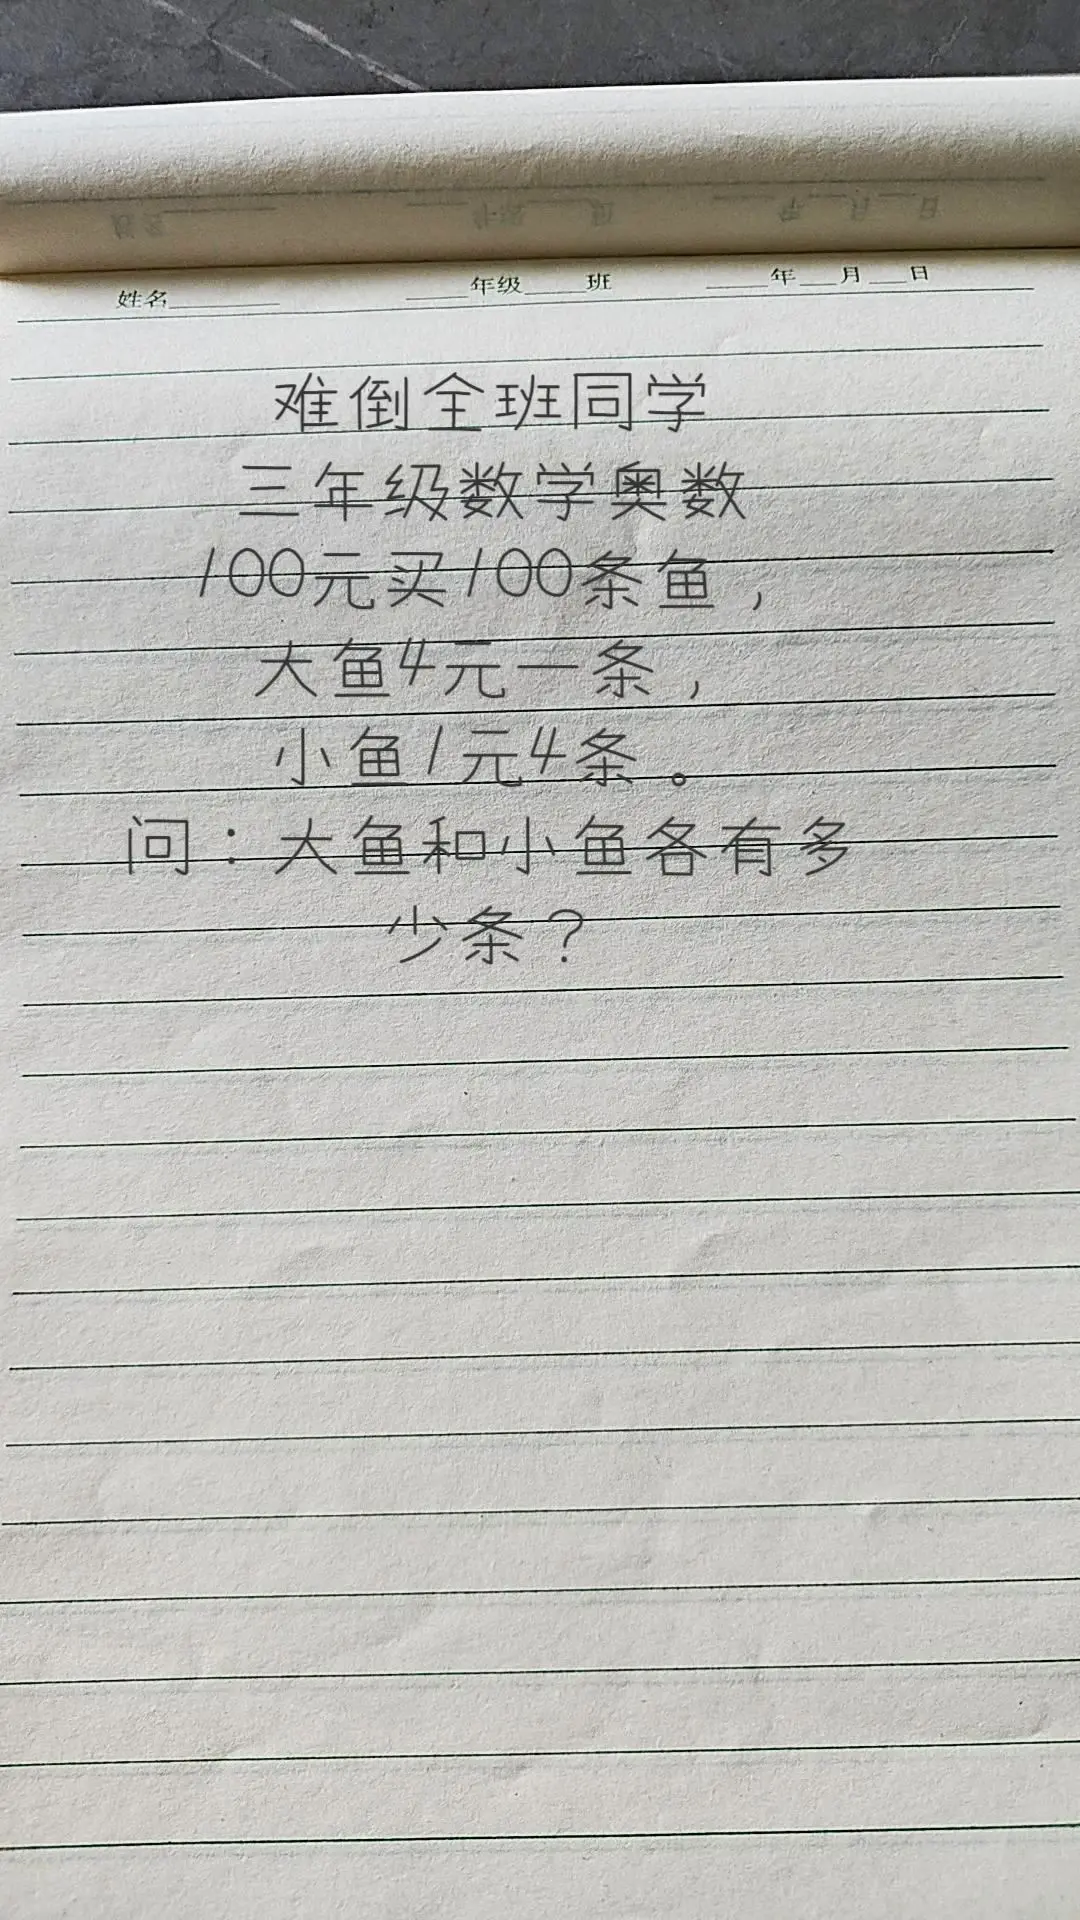 姓名______ ____年级____班 ____年___月___日
难倒全班同学
三年级数学奥数
100元买100条鱼，
大鱼4元一条，
小鱼1元4条。
问：大鱼和小鱼各有多
少条？